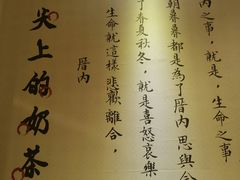 內之事，就是，生命之事
朝暮暮都是為了厝內 思與
了春夏秋冬，就是喜怒哀樂
生命就這樣 悲歡離合，
厝內
尖上的奶茶